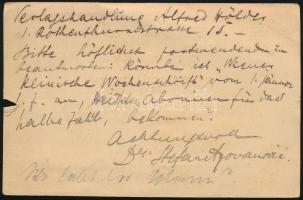 Verlagshandlung Alfred Hölder
1. Rothenthurmstrasse 15.-
Bitte höflichst postwendenden zu
beantworten: Könnte ich "Wiener
klinische Wochenschrift" vom 1. Jänner
d. J. an, Abonnieren für das
halbe Jahr, bekommen.
Achtungsvoll
Dr. Stefan Jovanović